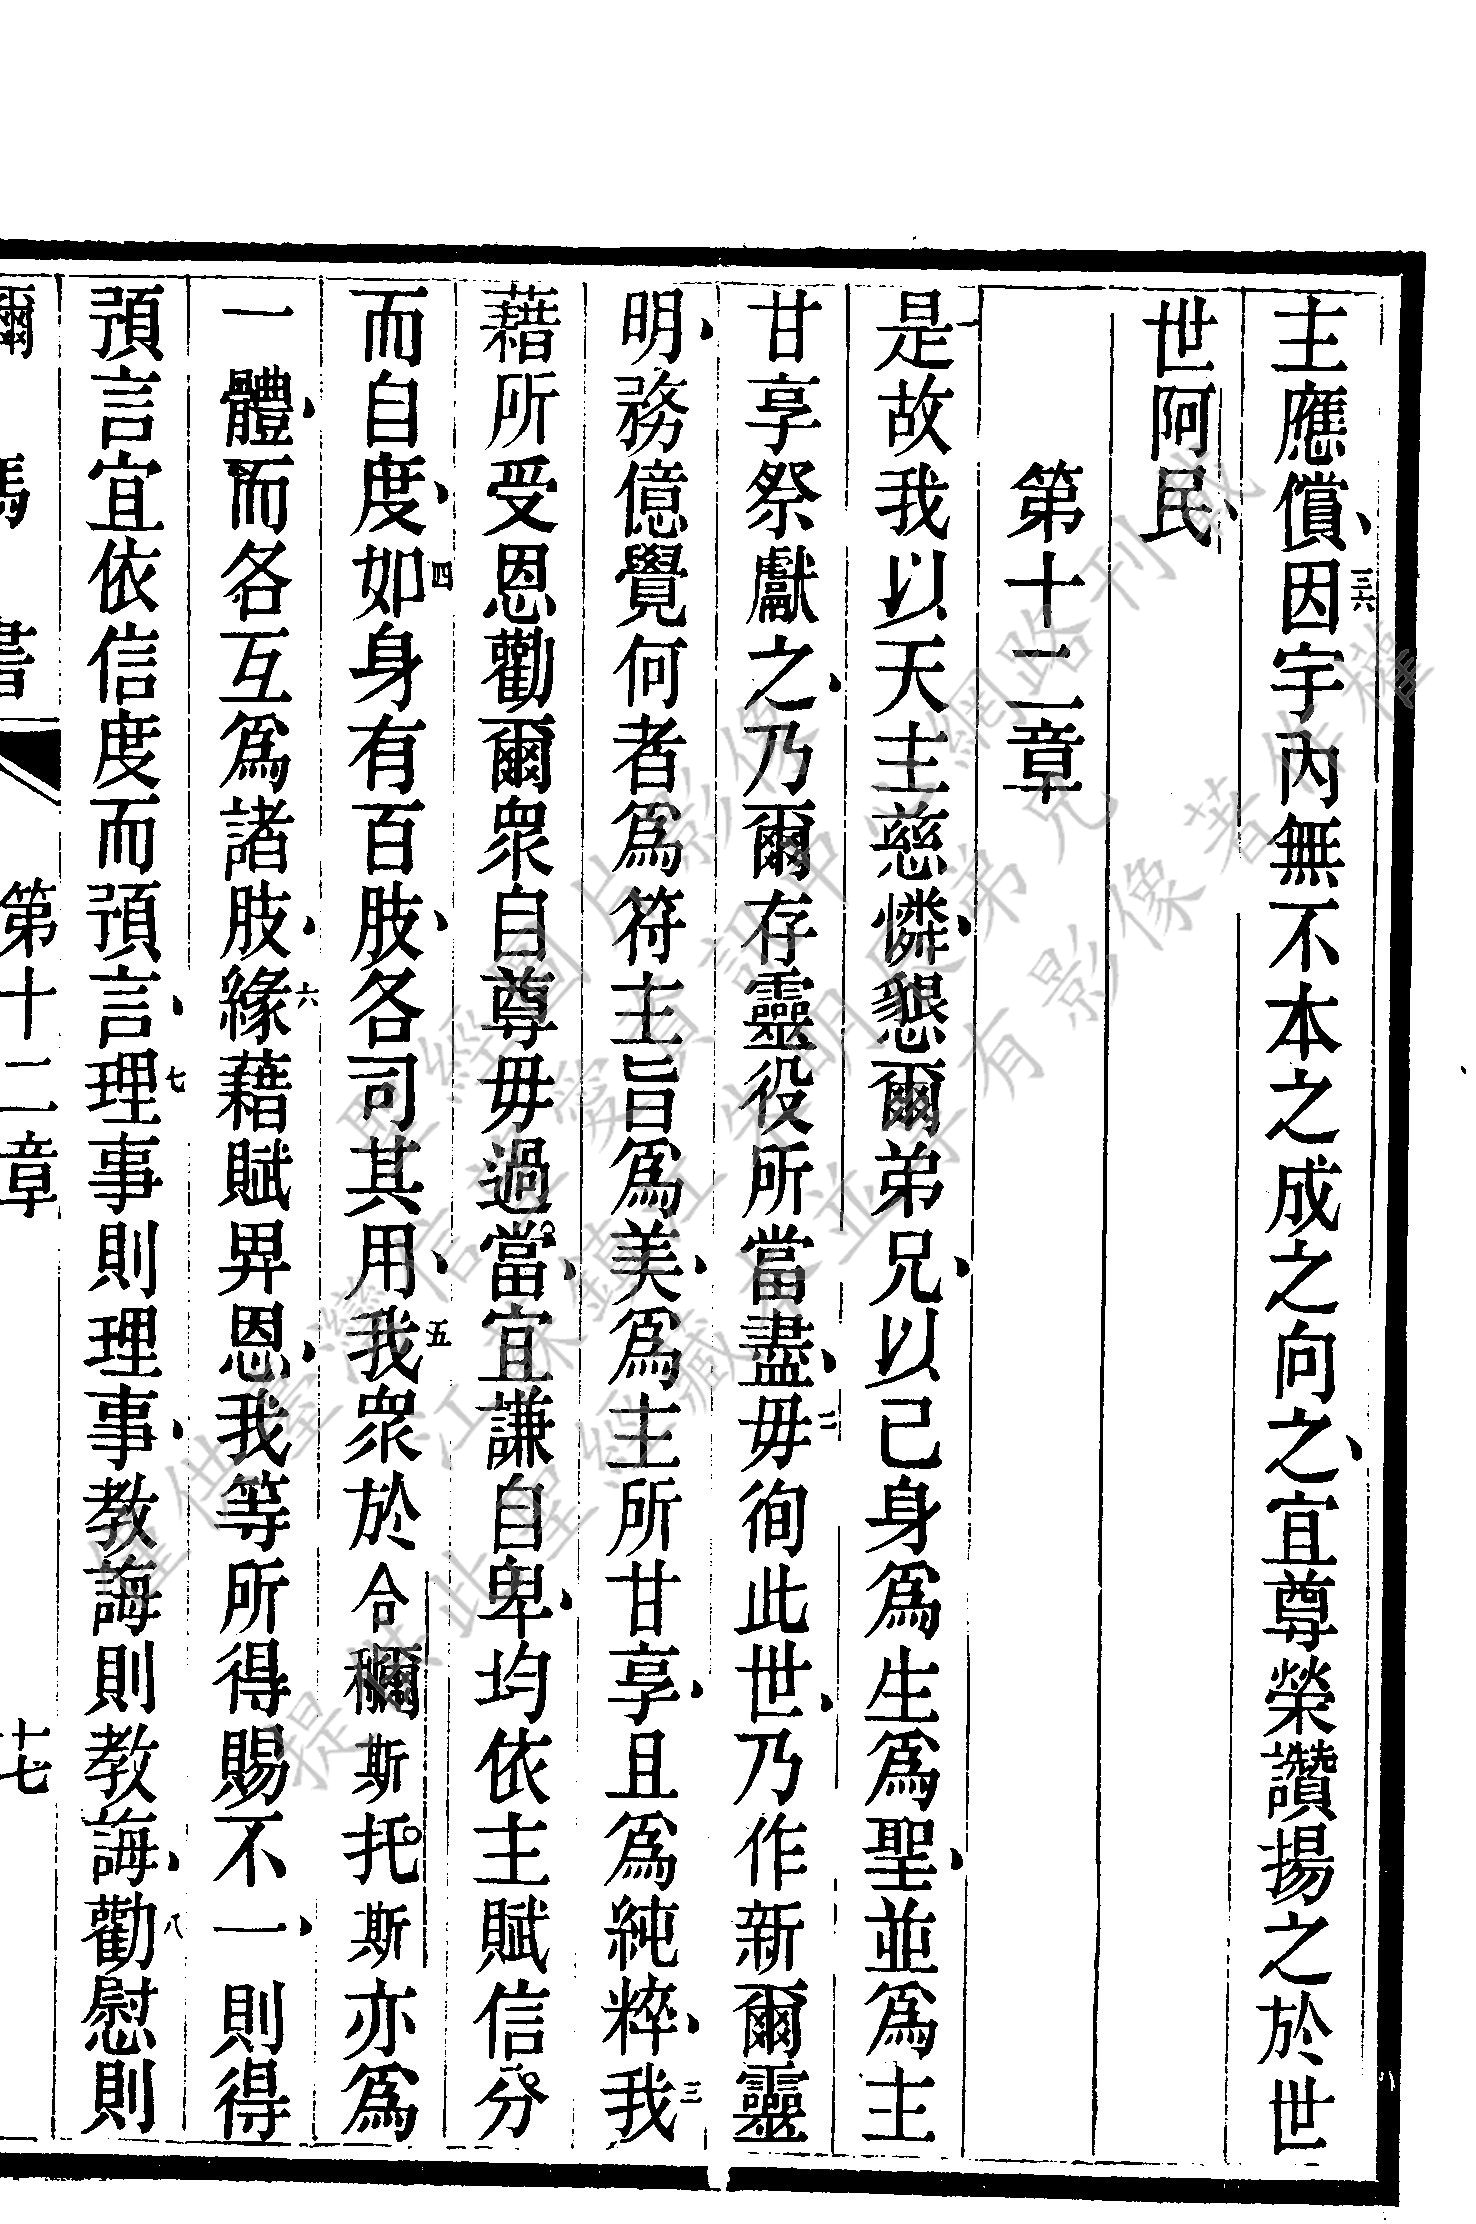 主應償、三六因宇內無不本之成之向之、宜尊榮讚揚之於世
世阿民、
第十二章
一是故我以天主慈憐、懇爾弟兄、以己身爲生爲聖、並爲主
甘享祭獻之、乃爾存靈役所當盡、二毋徇此世、乃作新爾靈
明、務億覺何者爲符主旨爲美、爲主所甘享、且爲純粹、三我
藉所受恩勸爾眾自尊毋過當、宜謙自卑、均依主賦信分
而自度、四如身有百肢、各司其用、五我眾於合穪斯托斯亦爲
一體、而各互爲諸肢、六緣藉賦畀恩、我等所得賜不一、則得
預言宜依信度而預言、七理事則理事、教誨則教誨、八勸慰則
爾 瑪 書 第十二章 十七